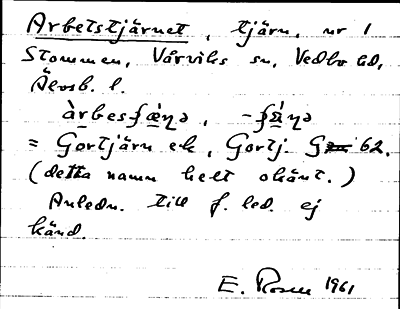 Arbetstjärnet, tjärn, nr 1
Stommen, Vårviks sn, Vedbo hd,
Älvsb. l.
àrbesʃæ̀ɳə, -ʃæ̀ɳə
= Gortjärn ek, Gortj. 62.
(detta namn helt okänt.)
Anledn. till f. led. ej
känd.
E. Rosen 1961